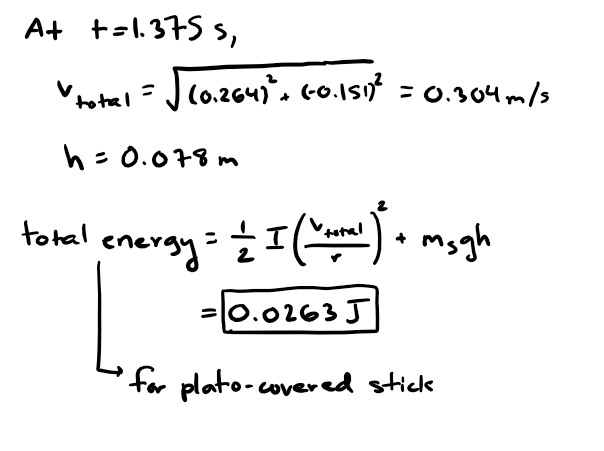 At t=1.375 s,
v_total = √((0.264)² + (-0.151)²) = 0.304 m/s
h = 0.078 m
total energy = 1/2 I (v_total/r)² + m_s g h
= 0.0263 J
for plato-covered stick